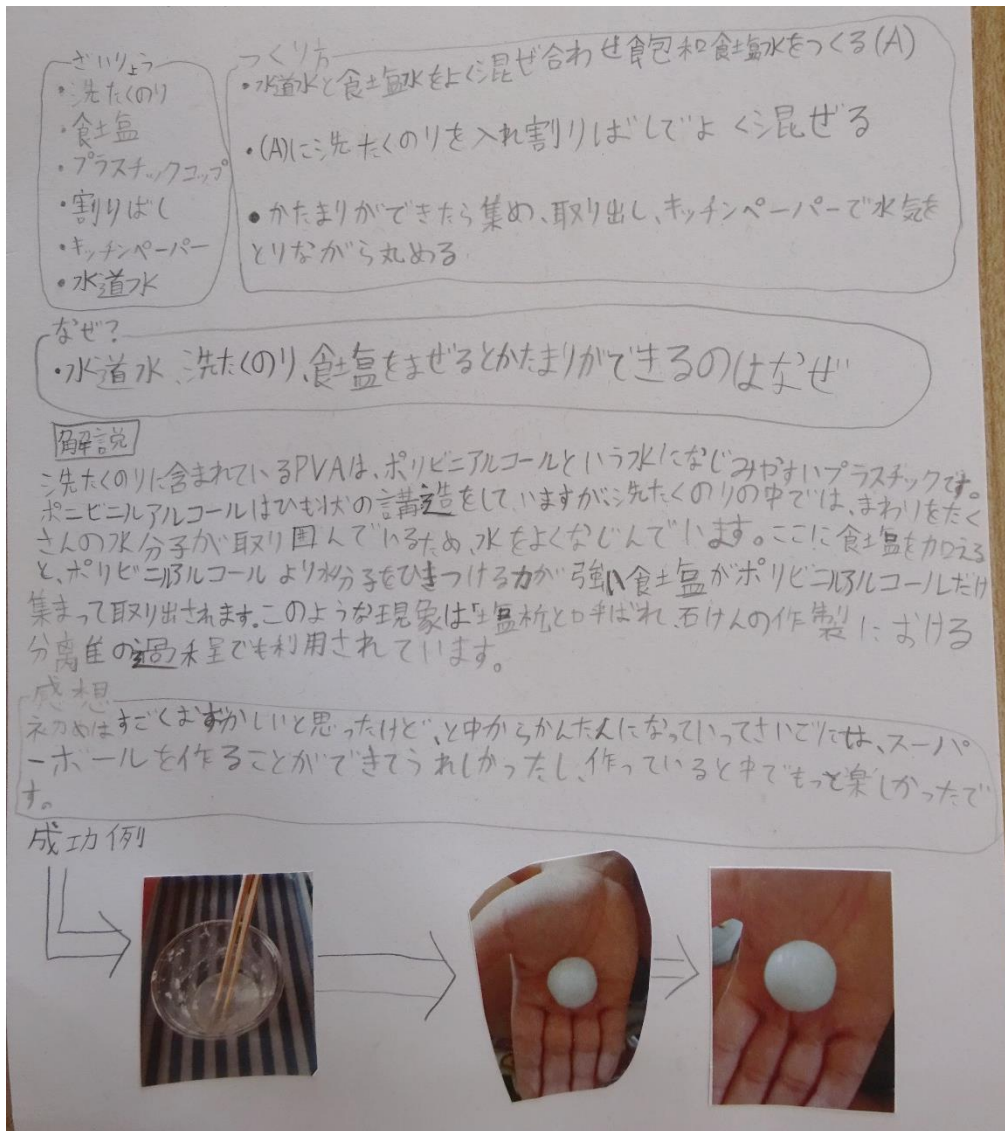 ざいりょう
・洗たくのり
・食塩
・プラスチックコップ
・割りばし
・キッチンペーパー
・水道水
つくり方
・水道水と食塩水をよく混ぜ合わせ飽和食塩水をつくる(A)
・(A)に洗たくのりを入れ割りばしでよく混ぜる
・かたまりができたら集め、取り出し、キッチンペーパーで水気を
とりながら丸める
なぜ?
・水道水、洗たくのり、食塩をまぜるとかたまりができるのはなぜ
解説
洗たくのりに含まれているPVAは、ポリビニアルコールという水になじみやすいプラスチックです。
ポニビニルアルコールはひも状の講造をしていますが、洗たくのりの中では、まわりをたく
さんの水分子が取り囲んでいるため、水をよくなじんでいます。ここに食塩を加える
と、ポリビニルアルコールより水分子をひきつける力が強い食塩がポリビニルアルコールだけ
集まって取り出されます。このような現象は「塩析と呼ばれ、石けんの作製における
分離の過程でも利用されています。
感想
初めはすごくむずかしいと思ったけど、と中からかんたんになっていってさいごには、スーパ
ーボールを作ることができてうれしかったし、作っていると中でもっと楽しかったで
す。
成功例